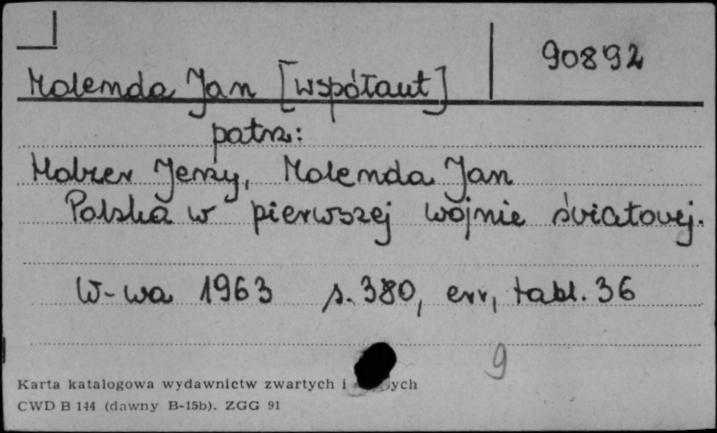 90892
Molenda Jan [współaut]
patrz:
Holzer Jerzy, Molenda Jan
Polska w pierwszej wojnie światowej.
W-wa 1963 s. 380, err, tabl. 36
9
Karta katalogowa wydawnictw zwartych i ych
CWD B 144 (dawny B-15b). ZGG 91